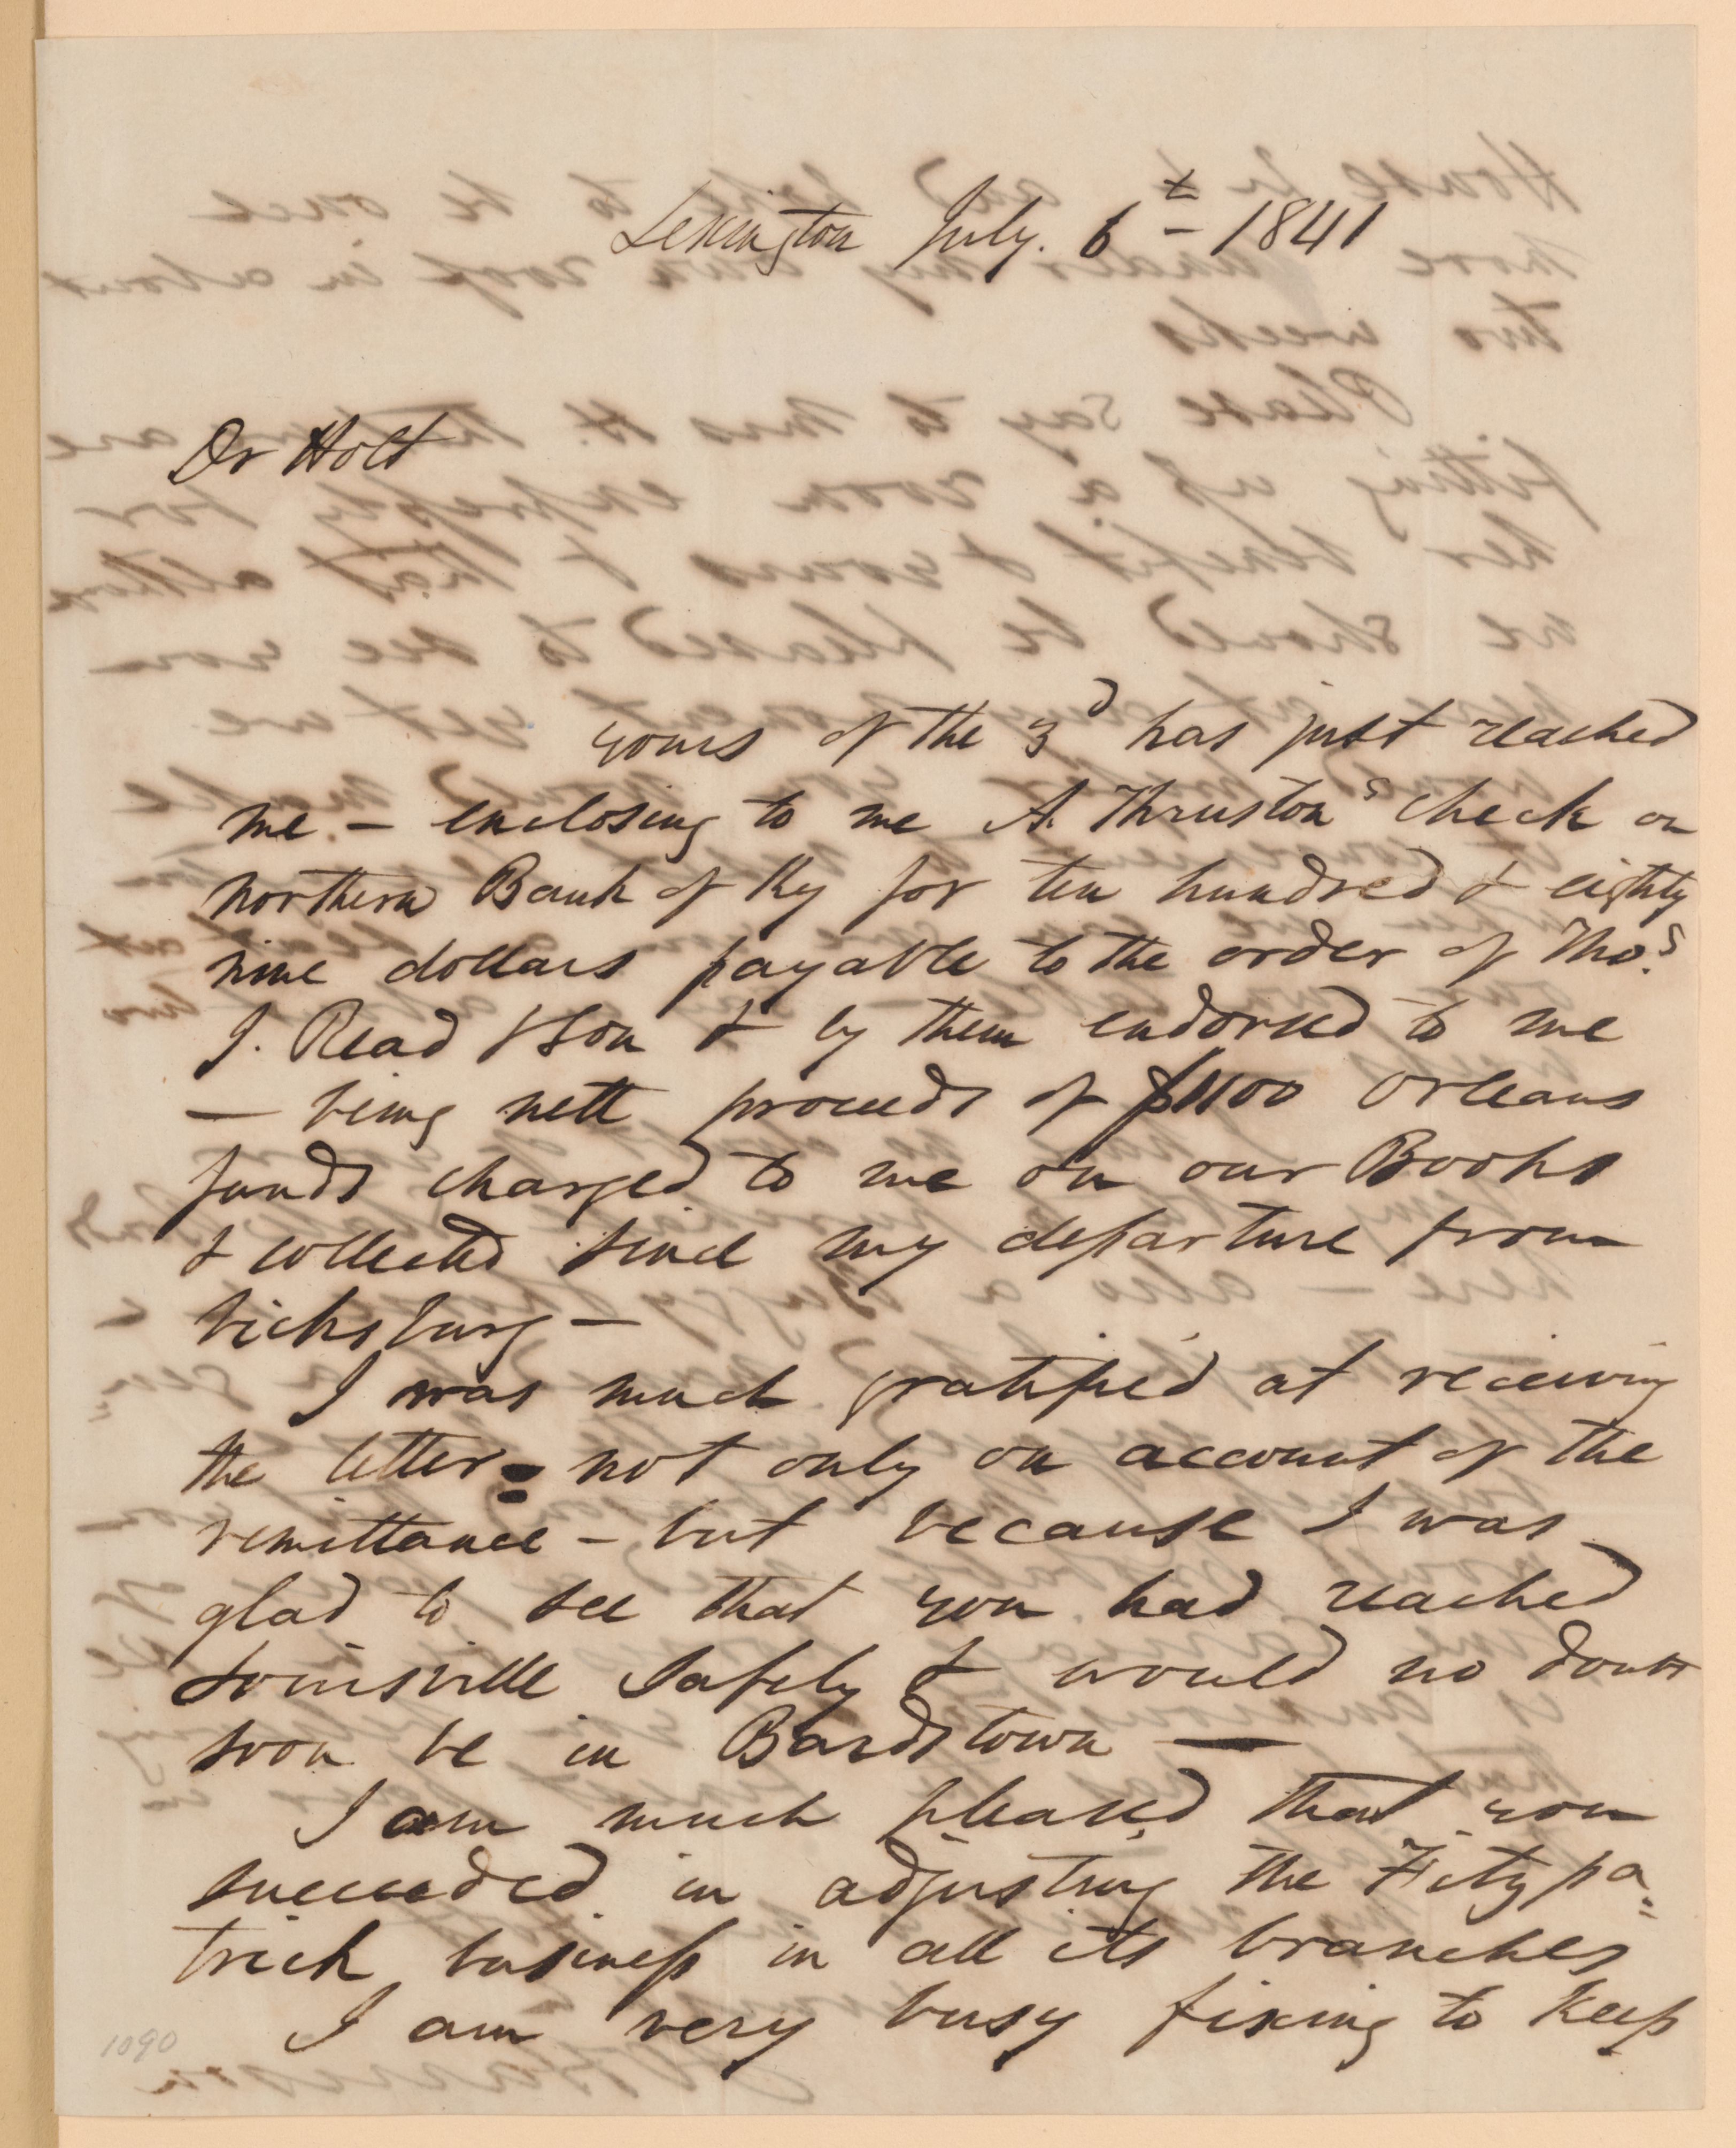 Lexington July. 6th 1841
Dr Holt
yours of the 3d has just reached
me - enclosing to me A. Thruston's check on
northern Bank of Ky for ten hundred & eighty
nine dollars payable to the order of Thos.
J. Read & Son & by them endorsed to me
- being nett proceeds of $1100 Orleans
funds charged to me on our Books
& collected since my departure from
Vicksburg -
I was much gratified at receiving
the letter - not only on account of the
remittance - but because I was
glad to see that you had reached
Louisville Safely & would no doubt
soon be in Bardstown -
I am much pleased that you
succeeded in adjusting the Fitzpa=
trick business in all its branches
I am very busy fixing to keep
1090